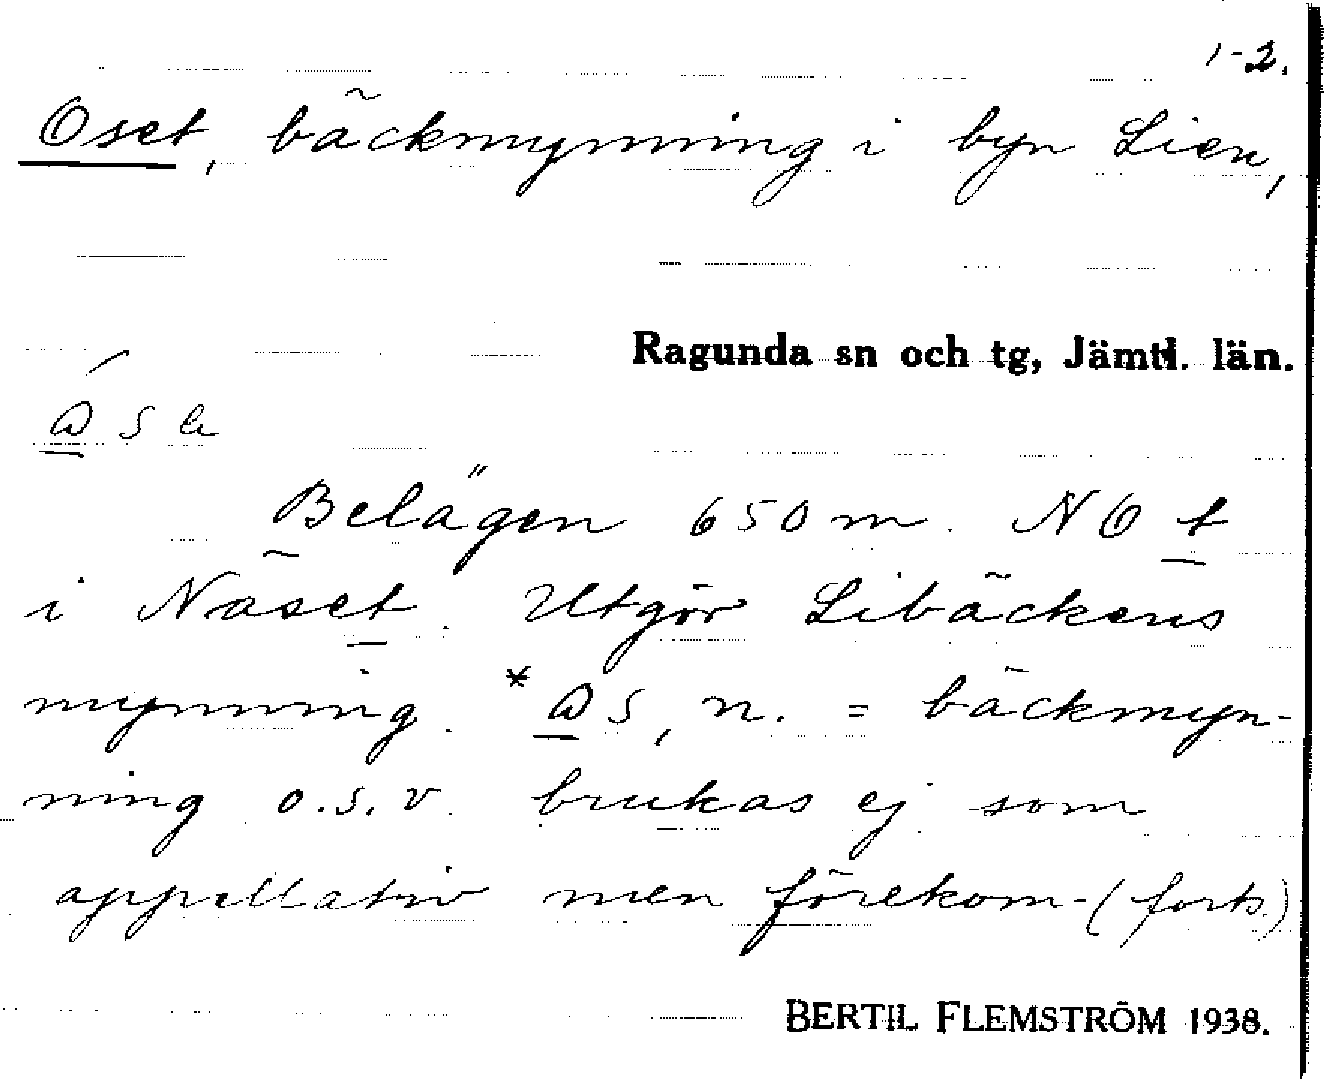 1-2.
Oset, bäckmynning i byn Lien,
Ragunda sn och tg, Jämtl. län.
Belägen 650 m. NO t
i Näset. Utgör Libäckens
mynning. *ω̲s, n. = bäckmyn-
ning o.s.v. brukas ej som
appellativ men förekom-(forts.)
BERTIL FLEMSTRÖM 1938.